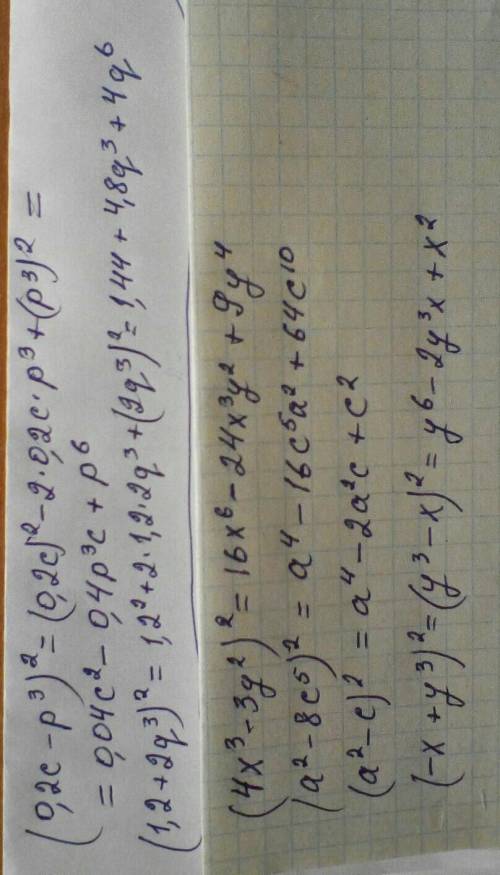 (0,2c - p³)² = (0,2c)² - 2·0,2c·p³ + (p³)² =
= 0,04c² - 0,4p³c + p⁶
(1,2 + 2q³)² = 1,2² + 2·1,2·2q³ + (2q³)² = 1,44 + 4,8q³ + 4q⁶
(4x³ - 3y²)² = 16x⁶ - 24x³y² + 9y⁴
(a² - 8c⁵)² = a⁴ - 16c⁵a² + 64c¹⁰
(a² - c)² = a⁴ - 2a²c + c²
(-x + y³)² = (y³ - x)² = y⁶ - 2y³x + x²